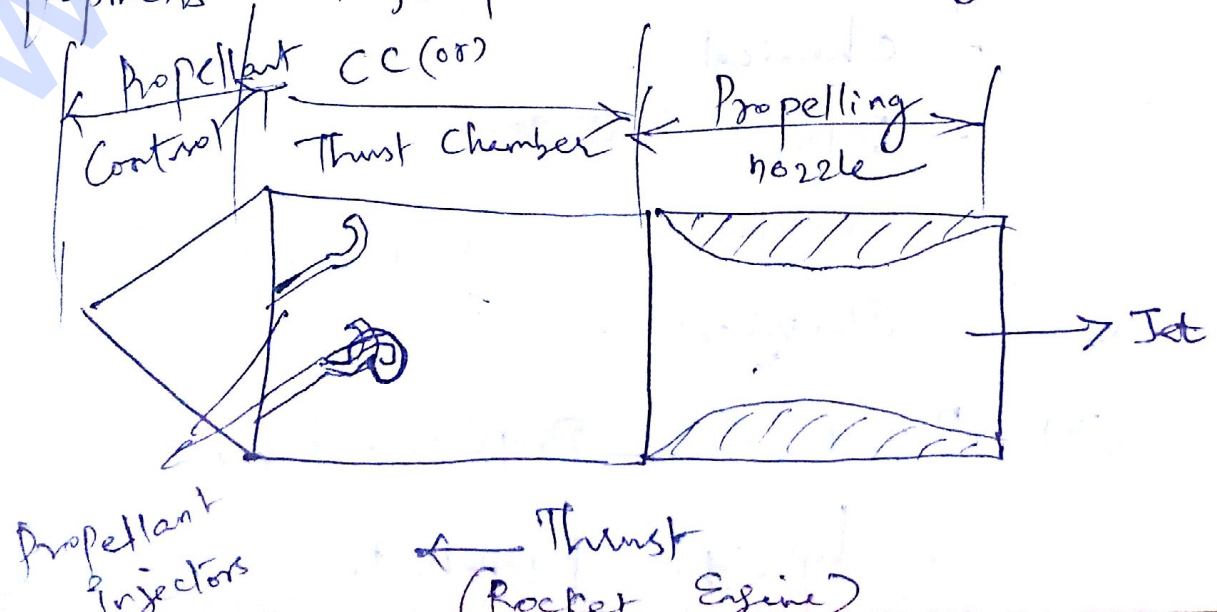 Propellant
Control
CC (or)
Thrust Chamber
Propelling
nozzle
Jet
Propellant
injectors
Thrust
(Rocket Engine)